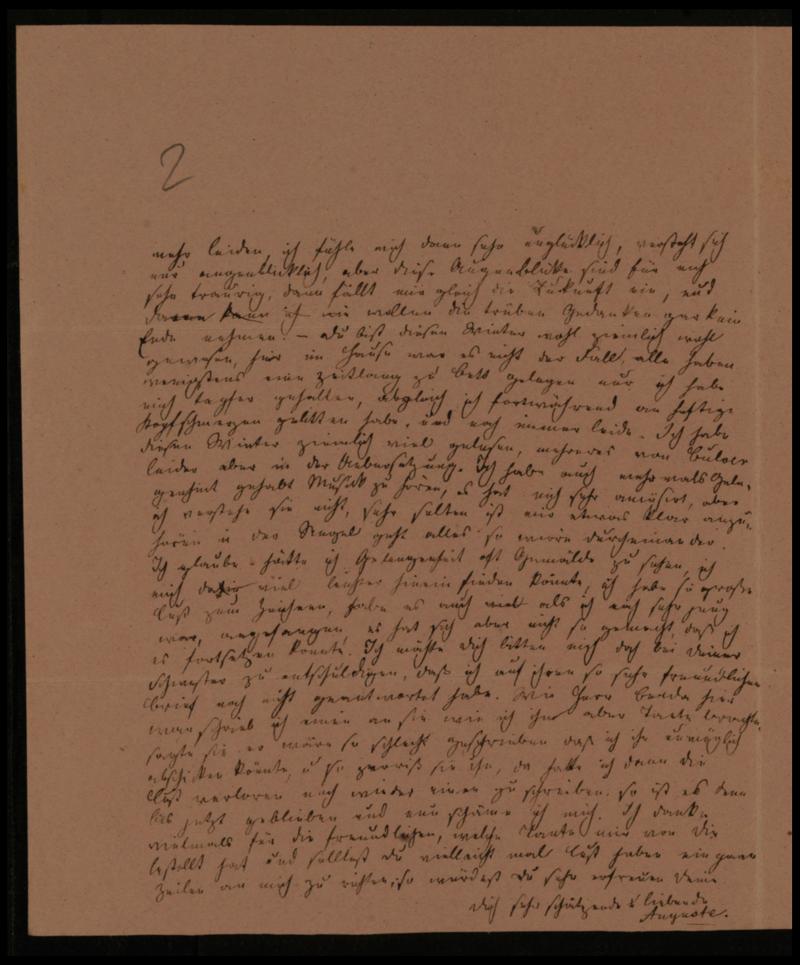 2
mehr leiden, ich fühle mich dann sehr unglücklich, versteht sich
nur augenblicklich, aber diese Augenblicke sind für mich
sehr traurig, dann fällt mir gleich die Zukunft ein, und
dann kann ich wie wollen die trüben Gedanken gar kein
Ende nehmen. – Du bist diesen Winter wohl ziemlich wohl
gewesen, hier im Hause war es nicht der Fall, alle haben
wenigstens eine Zeitlang zu Bett gelegen nur ich habe
mich tapfer gehalten, obgleich ich fortwährend an heftige
Kopfschmerzen gelitten habe, und noch immer leide. Ich habe
diesen Winter ziemlich viel gelesen, mehreres von Bulwer
leider aber in der Uebersetzung. Ich habe auch mehrmals Gele-
genheit gehabt Musick zu hören, es hat mich sehr amüsirt, aber
ich verstehe sie nicht, sehr selten ist mir etwas klar anzu-
hören in der Regel geht alles so wirre durcheinander.
Ich glaube hätte ich Gelegenheit oft Gemälde zu sehen, ich
mich viel leichter hinein finden könnte, ich habe so große
Lust zum Zeichnen, habe es auch mal als ich noch sehr jung
war, angefangen, es hat sich aber nicht so gemacht, daß ich
es fortsetzen konnte. Ich möchte Dich bitten mich doch bei Deiner
Schwester zu entschuldigen, daß ich auf ihren so sehr freundlichen
Brief noch nicht geantwortet habe. Wie Herr hier
war schrieb ich einen an sie wie ich ihn aber Tante brachte,
sagte sie er wäre so schlecht geschrieben daß ich ihn unmöglich
abschicken könnte, u so zerriß sie ihn, da hatte ich dann die
Lust verloren noch wieder einen zu schreiben. so ist es denn
bis jetzt geblieben und nun schäme ich mich. Ich danke
vielmals für die freundlichen, welche Tante mir von Dir
bestellt hat und solltest Du vielleicht mal Lust haben ein paar
Zeilen an mich zu richten, so würdest Du sehr erfreuen Deine
Dich sehr schätzende u liebende
Auguste.